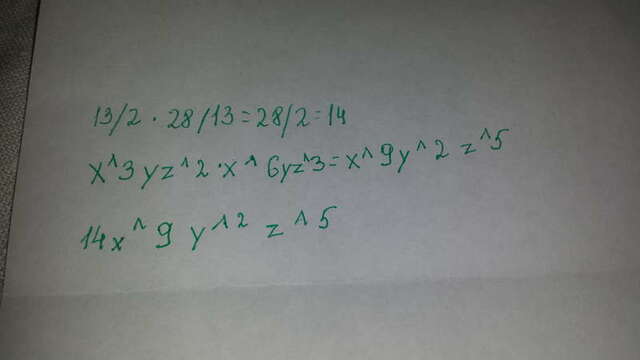 13/2 · 28/13 = 28/2 = 14
x^3yz^2 · x^6yz^3 = x^9y^2 z^5
14x^9 y^2 z^5